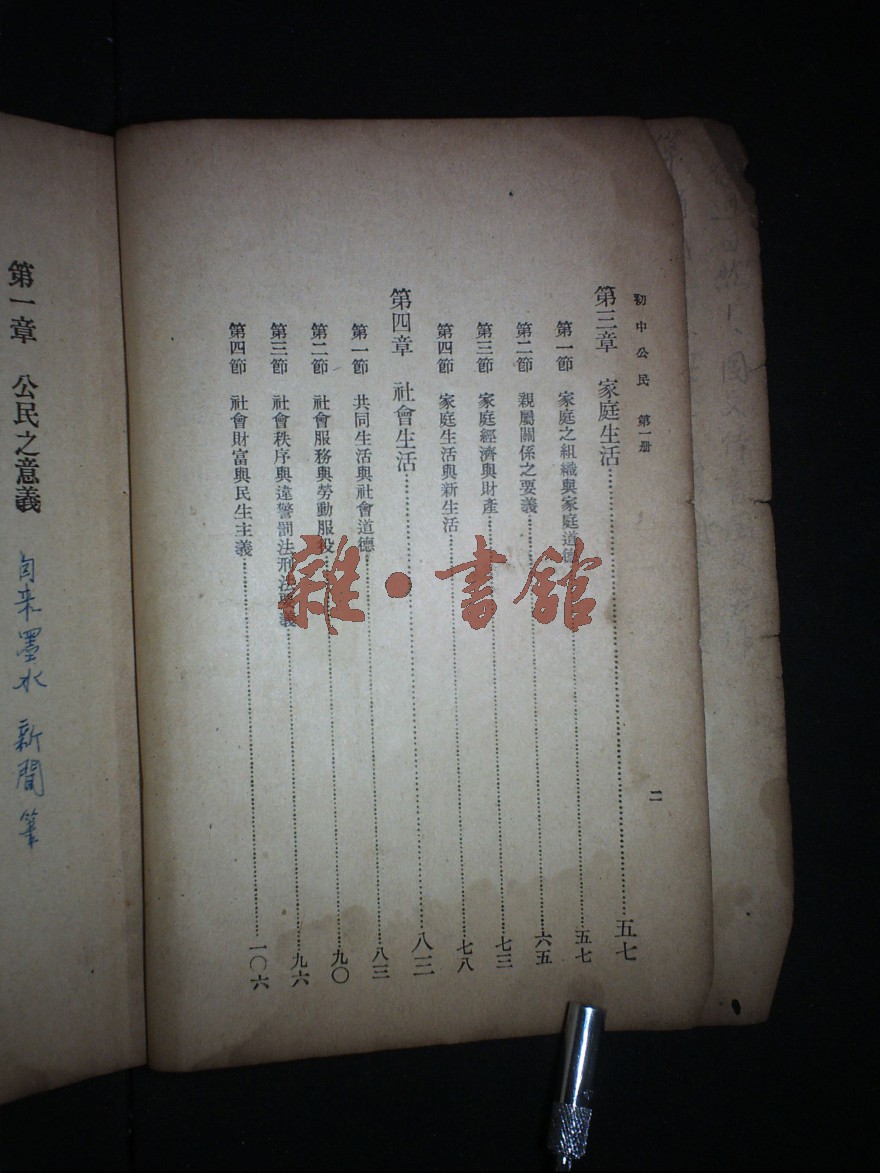 初中公民 第一册
二
第三章 家庭生活……五七
第一節 家庭之組織與家庭道德……五七
第二節 親屬關係之要義……六五
第三節 家庭經濟與財產……七三
第四節 家庭生活與新生活……七八
第四章 社會生活……八三
第一節 共同生活與社會道德……八三
第二節 社會服務與勞動服役……九〇
第三節 社會秩序與違警罰法刑法要義……九六
第四節 社會財富與民生主義……一〇六
雜·書館
第一章 公民之意義
自来墨水 新聞筆